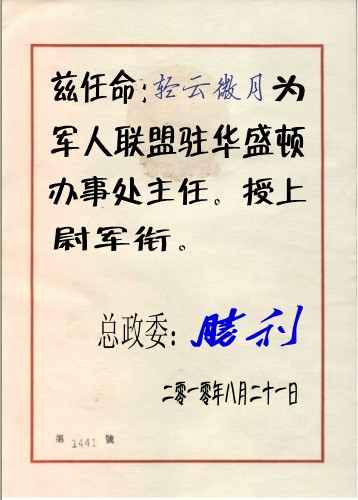 兹任命:轻云微月为
军人联盟驻华盛顿
办事处主任。授上
尉军衔。
总政委:勝利
二零一零年八月二十一日
第 1441 號